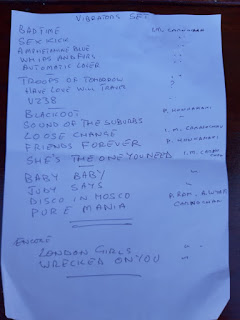 VIBRATORS SET
BAD TIME
SEX KICK
AMPHETAMINE BLUE
WHIPS AND FURS
AUTOMATIC LOVER
TROOPS OF TOMORROW
HAVE LOVE WILL TRAVEL
V238
BLACKOUT
SOUND OF THE SUBURBS
LOOSE CHANGE I.M. CARNOCHAN
FRIENDS FOREVER
SHE'S THE ONE YOU NEED
BABY BABY
JUDY SAYS
DISCO IN MOSCO
PURE MANIA CARNOCHAN
ENCORE
LONDON GIRLS
WRECKED ON YOU